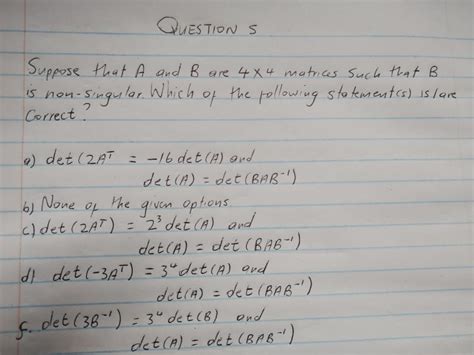 QUESTION 5
Suppose that A and B are 4x4 matrices such that B
is non-singular. Which of the following statement(s) is/are
correct?
a) det(2Aᵀ = -16 det(A) and
det(A) = det(BAB⁻¹)
b) None of the given options
c) det(2Aᵀ) = 2³ det(A) and
det(A) = det(BAB⁻¹)
d) det(-3Aᵀ) = 3⁴ det(A) and
det(A) = det(BAB⁻¹)
f. det(3B⁻¹) = 3⁴ det(B) and
det(A) = det(BAB⁻¹)